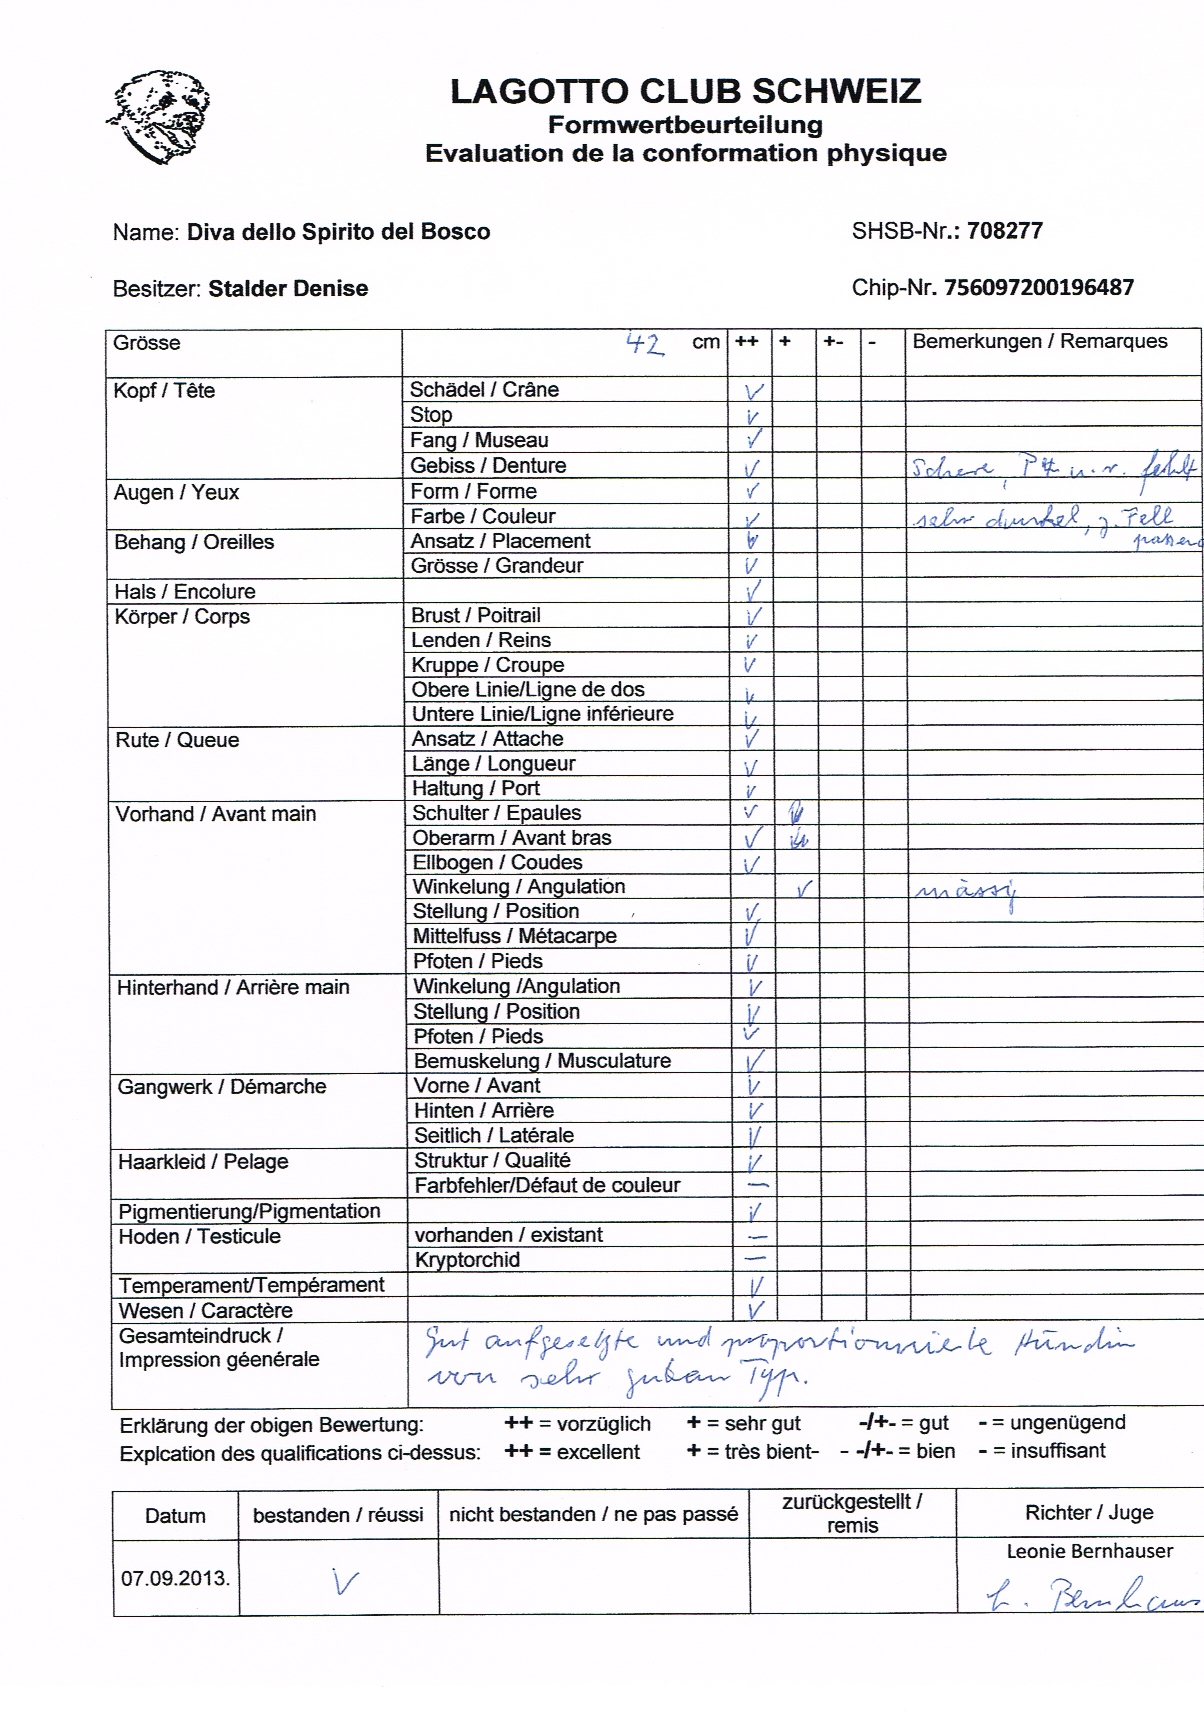 LAGOTTO CLUB SCHWEIZ
Formwertbeurteilung
Evaluation de la conformation physique
Name: Diva dello Spirito del Bosco SHSB-Nr.: 708277
Besitzer: Stalder Denise Chip-Nr. 756097200196487
Grösse 42 cm ++ + +- - Bemerkungen / Remarques
Kopf / Tête Schädel / Crâne
Stop
Fang / Museau
Gebiss / Denture Schere, P4 u.r. fehlt
Augen / Yeux Form / Forme
Farbe / Couleur sehr dunkel, z. Fell
Behang / Oreilles Ansatz / Placement passend
Grösse / Grandeur
Hals / Encolure
Körper / Corps Brust / Poitrail
Lenden / Reins
Kruppe / Croupe
Obere Linie/Ligne de dos
Untere Linie/Ligne inférieure
Rute / Queue Ansatz / Attache
Länge / Longueur
Haltung / Port
Vorhand / Avant main Schulter / Epaules
Oberarm / Avant bras
Ellbogen / Coudes
Winkelung / Angulation mässig
Stellung / Position
Mittelfuss / Métacarpe
Pfoten / Pieds
Hinterhand / Arrière main Winkelung /Angulation
Stellung / Position
Pfoten / Pieds
Bemuskelung / Musculature
Gangwerk / Démarche Vorne / Avant
Hinten / Arrière
Seitlich / Latérale
Haarkleid / Pelage Struktur / Qualité
Farbfehler/Défaut de couleur —
Pigmentierung/Pigmentation
Hoden / Testicule vorhanden / existant —
Kryptorchid —
Temperament/Tempérament
Wesen / Caractère
Gesamteindruck / Gut aufgesetzte und proportionnierte Hündin
Impression géenérale von sehr gutem Typ.
Erklärung der obigen Bewertung: ++ = vorzüglich + = sehr gut -/+- = gut - = ungenügend
Explcation des qualifications ci-dessus: ++ = excellent + = très bient- - -/+- = bien - = insuffisant
Datum bestanden / réussi nicht bestanden / ne pas passé zurückgestellt / remis Richter / Juge
Leonie Bernhauser
07.09.2013.
L. Bernhaus